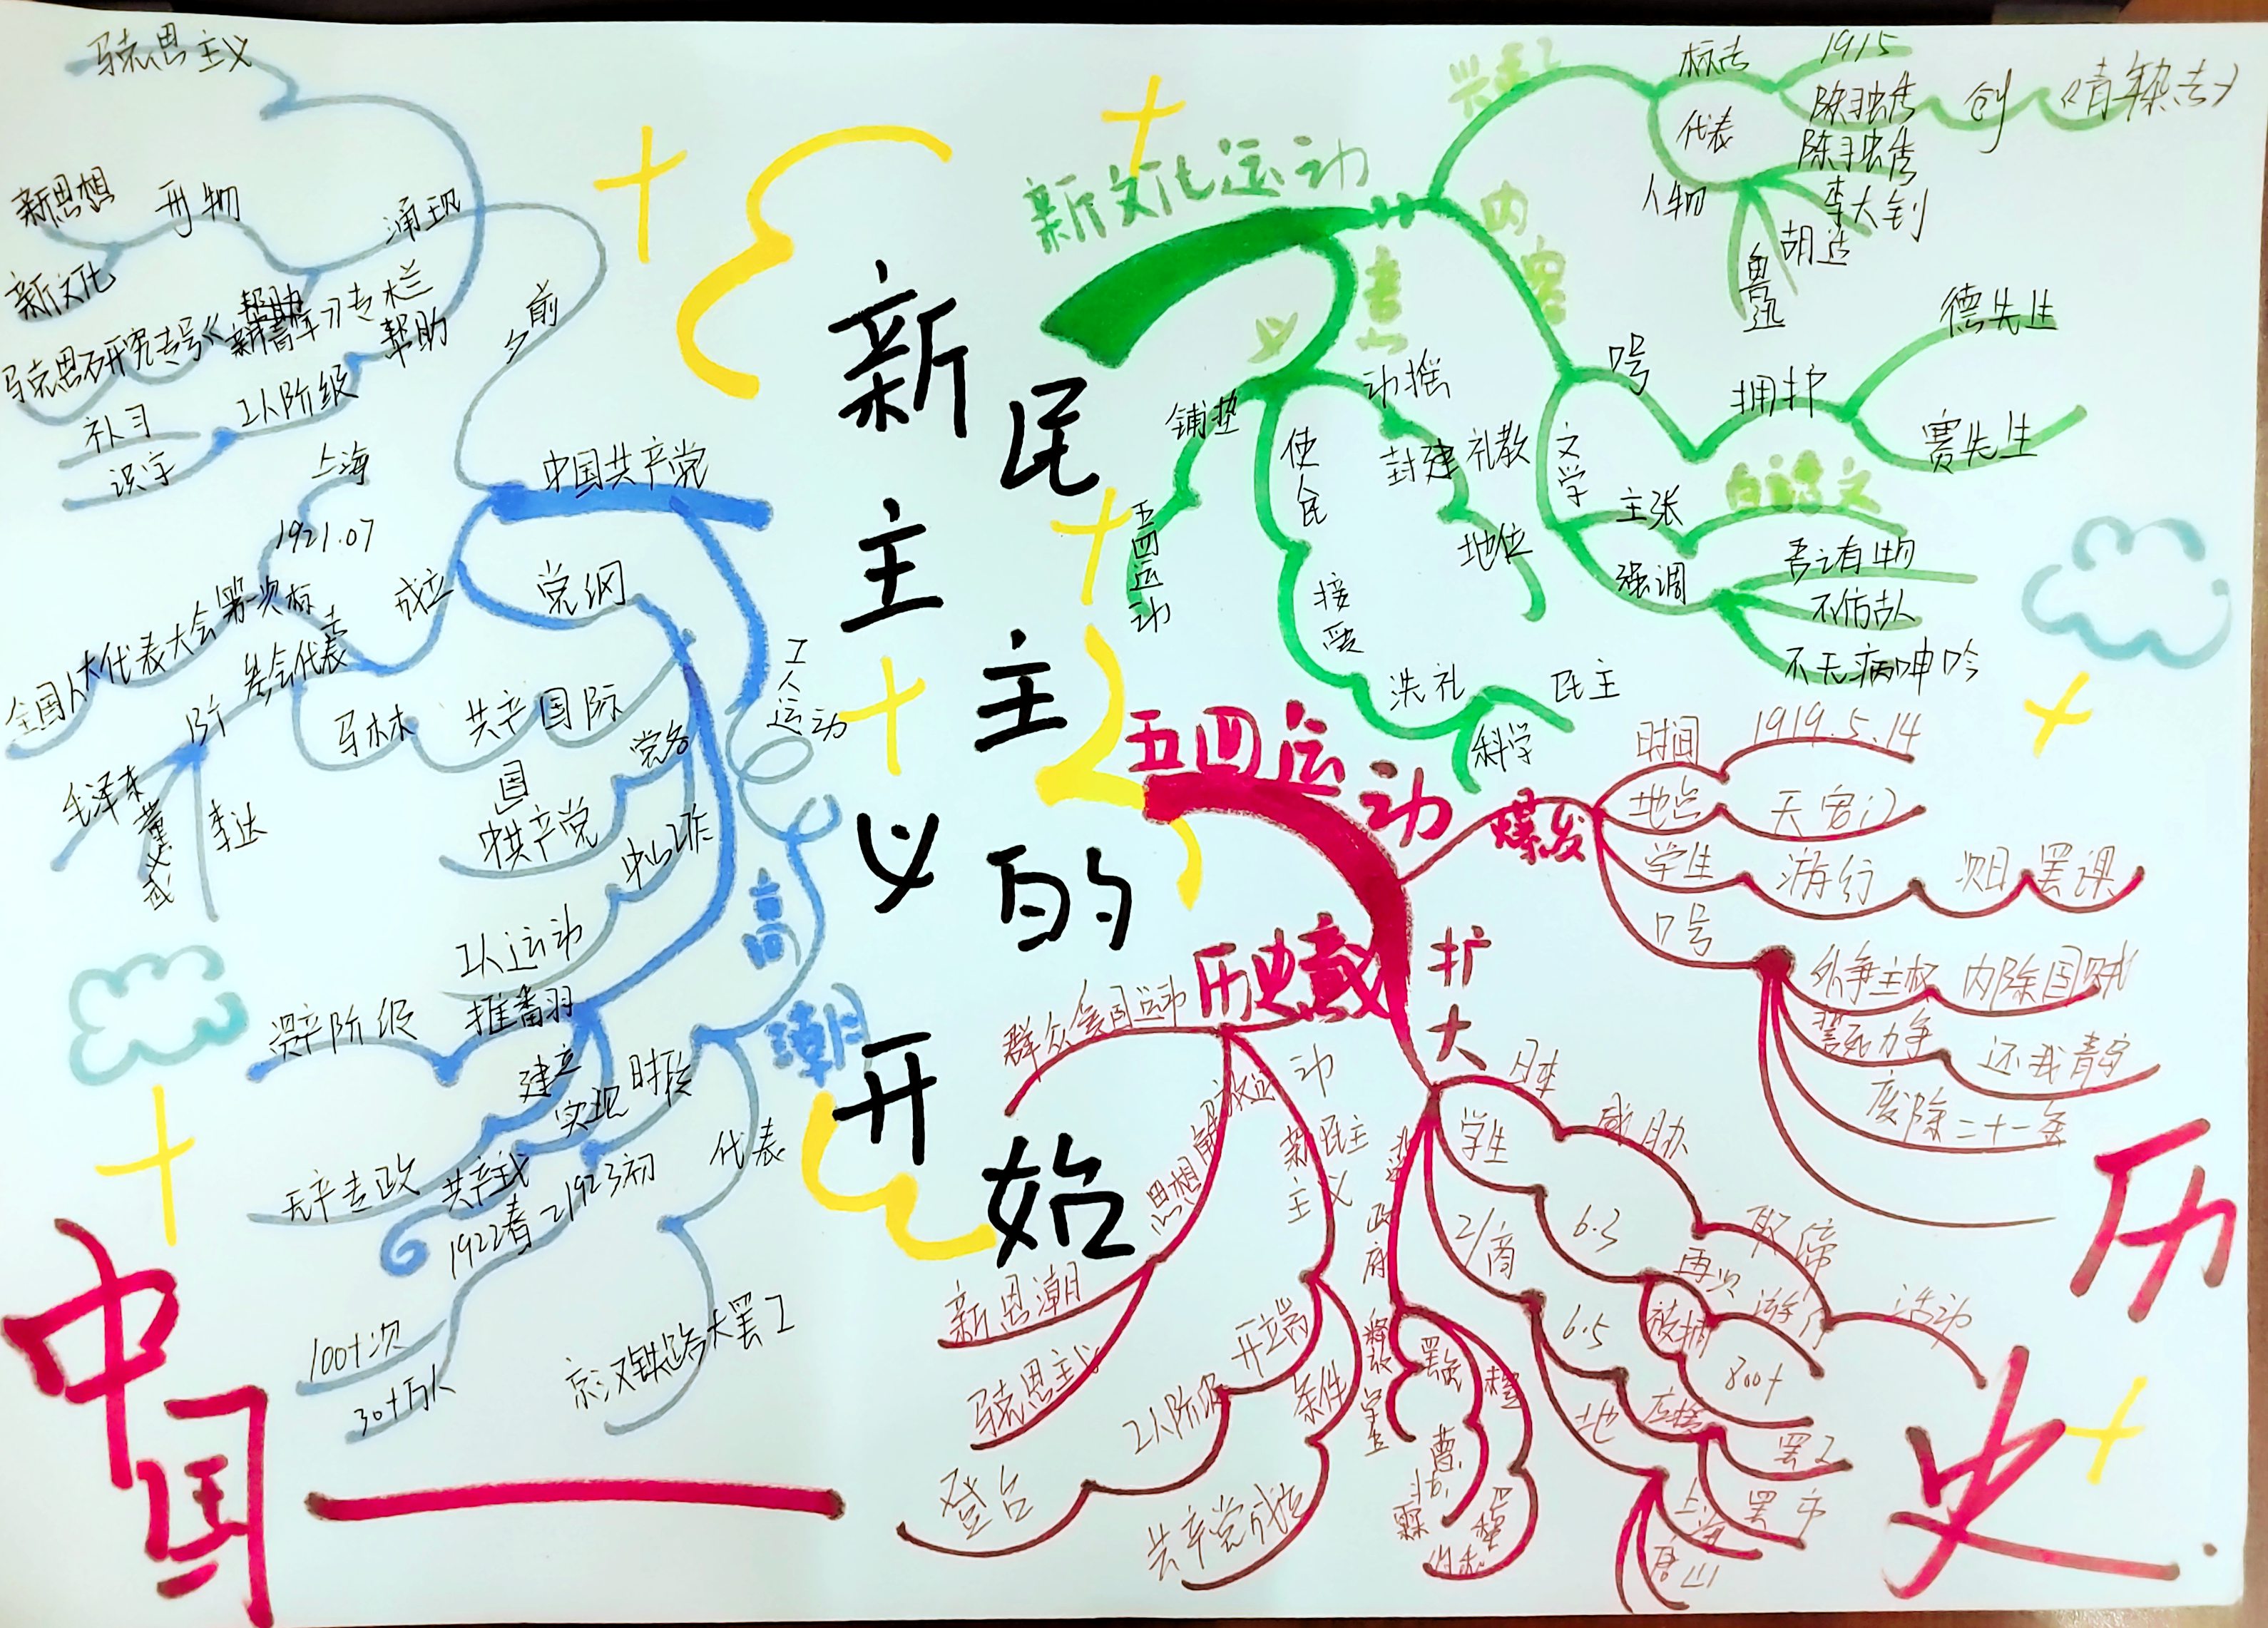 新
民
主
主
义
的
开
始
中国
历史
新文化运动
兴起
标志
1915
陈独秀
创
《青年杂志》
代表
人物
陈独秀
李大钊
胡适
鲁迅
内容
口号
拥护
德先生
赛先生
文学
主张
白话文
强调
言之有物
不仿古人
不无病呻吟
意义
动摇
封建
礼教
地位
使人民
接受
洗礼
民主
科学
铺垫
五四运动
五四运动
爆发
时间
1919.5.14
地点
天安门
学生
游行
次日
罢课
口号
外争主权
内除国贼
誓死力争
还我青岛
废除二十一条
扩大
日本
威胁
取缔
活动
学生
6.3
再次
游行
被捕
800+
工/商
6.5
地
上海
唐山
罢工
罢市
北洋政府
释放学生
罢免
曹
历史意义
群众爱国运动
思想解放运动
新思潮
马克思主义
新民主主义
开端
工人阶级
登台
条件
共产党成立
中国共产党
前夕
马克思主义
涌现
刊物
新思想
新文化
马克思研究专号《新青年》专栏
帮助
工人阶级
补习
识字
成立
上海
1921.07
第一次
全国人大代表大会
参会代表
马林
共产国际
13个
毛泽东
董必武
李达
党纲
党名
中国共产党
中心工作
工人运动
推翻
资产阶级
建立
无产专政
实现
共产主义
工人运动
高潮
时段
1922春~1923初
100+次
30+万人
代表
京汉铁路大罢工